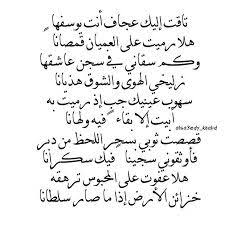 تاقت إليك عجاف أنت يوسفها
هلا رميت على العميان قمصانا
وكم سقاني في سجن عاشقها
زليخي الهوى والشوق هذيانا
سهوب عينيك جب إذ رميت به
أبيت إلا بقاء فيه ولهانا
قصصت ثوبي بسحر اللحظ من دبر
فأوثقوني سجينا فيك سكرانا
هلا عفوت على المحبوس ترهقه
خزائن الأرض إذا ما صار سلطانا